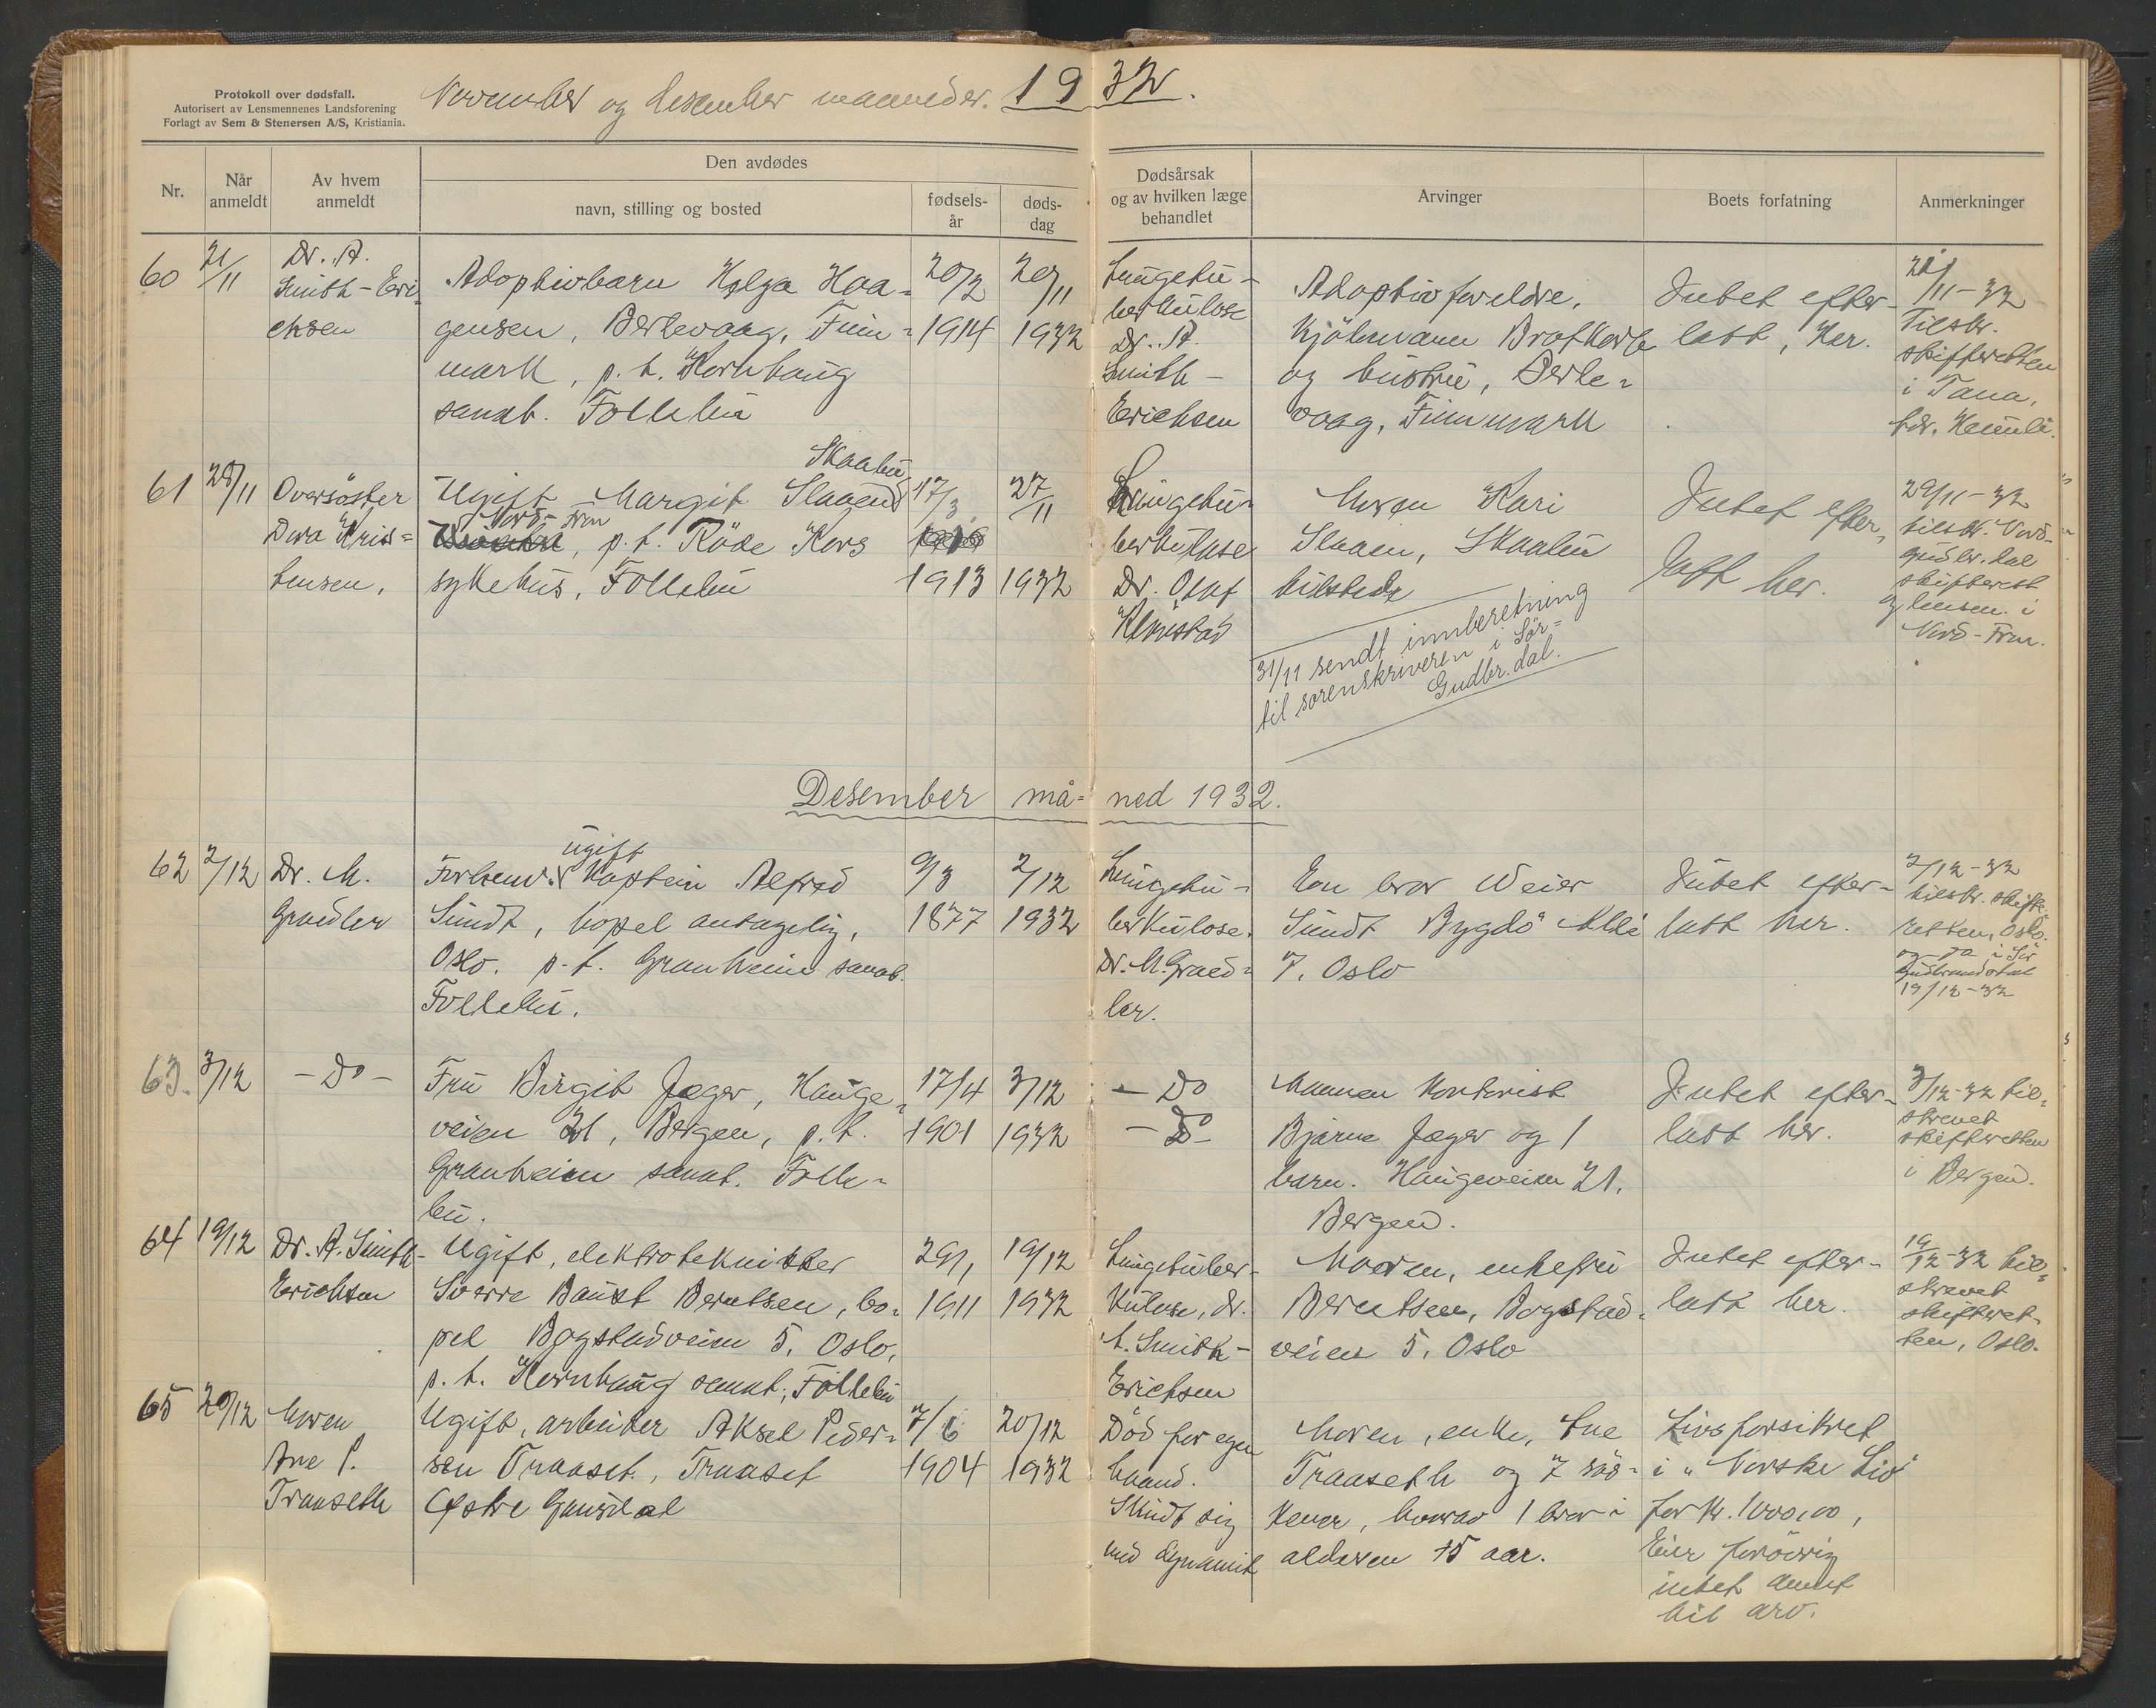 Protokoll over dødsfall.
Autorisert av Lensmennenes Landsforening
Forlagt av Sem & Stenersen A/S, Kristiania.
November og desember maaneder. 1932.
Nr.
Når anmeldt
Av hvem anmeldt
Den avdødes
navn, stilling og bosted
fødselsår
dødsdag
Dødsårsak og av hvilken læge behandlet
Arvinger
Boets forfatning
Anmerkninger
60
21/11
Dr. A.
Smith-Eri-
chsen
Adoptivbarn Helga Haa-
gensen, Berlevaag, Finn-
mark, p.t. Kornhaug
sanat. Follebu
20/2
1914
20/11
1932
Lungetu-
berkulose
Dr. A.
Smith-
Erichsen
Adoptivforeldre,
Kjöbmann Brotkorb
og hustru, Berle-
vaag, Finnmark
Intet efter-
latt, her.
21/11-32
Tilskr.
skifteretten
i Tana,
61
28/11
Oversöster
Dora Kris-
tensen,
Skaabu
Ugift Margit Slaaen
Nord-Fron
, p.t. Röde Kors
sykehus, Follebu
17/3
1913
27/11
1932
Lungetu-
berkulose
Dr. Olaf
Klevstad
Moren Kari
Slaaen, Skaabu
tilstede
31/11 sendt innberetning
til sorenskriveren i Sör-
Gudbr.dal.
Intet efter-
latt her.
29/11-32
tilskr. Nord-
gudbr.dal
skifterett
og lensm. i
Nord-Fron.
Desember måned 1932.
62
2/12
Dr. M.
Graedler
ugift
Forhenv. Kaptein Alfred
Sundt, bopel antagelig,
Oslo. p.t. Granheim sanat.
Follebu.
9/3
1877
2/12
1932
Lungetu-
berkulose.
Dr. M. Graed-
ler.
En bror Weier
Sundt Bygdö Allé
7. Oslo
Intet efter-
latt her.
2/12-32
tilskr. skifte-
retten, Oslo.
og i Sör
Gudbrandsdal
13/12-32
63.
3/12
- Do -
Fru Birgit Jæger, Hauge-
veien 21, Bergen, p.t.
Granheim sanat. Folle-
bu.
17/4
1901
3/12
1932
- Do
- Do -
Mannen Kontorist
Bjarne Jæger og 1
barn. Haugeveien 21.
Bergen.
Intet efter-
latt her.
3/12-32 til-
skrevet
skifteretten
i Bergen.
64
19/12
Dr. A. Smith-
Erichsen
Ugift, elektrotekniker
Sverre Berntsen, bo-
pel Bogstadveien 5, Oslo,
p.t. Kornhaug sanat., Follebu
29/1
1911
19/12
1932
Lungetuber-
kulose, dr.
A. Smith-
Erichsen
Moren, enkefru
Berntsen, Bogstad-
veien 5, Oslo
Intet efter-
latt her.
19/12-32 til-
skrevet
skifteret-
ten, Oslo.
65
20/12
Moren
Ane P.
Traaseth
Ugift, arbeider Aksel Peder-
sen Traaset, Traaset
Östre Gausdal
7/6
1904
20/12
1932
Död for egen
haand.
Skudt sig
med dynamit
Moren, enke, Ane
Traaseth og 7 sös-
kener, hvorav 1 bror i
alderen 15 aar.
Livsforsikret
i "Norske Liv"
for kr. 1000,00,
Eier forövrig
intet annet
til arv.